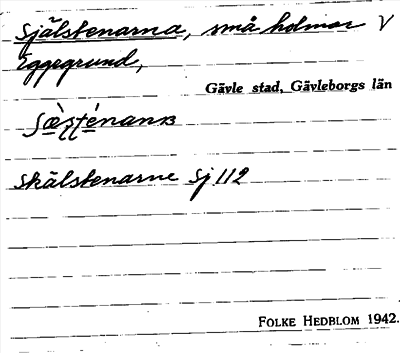 Själstenarna, små holmar V
Eggegrund,
Gävle stad, Gävleborgs län
Skälstenarne Sj 112
FOLKE HEDBLOM 1942.